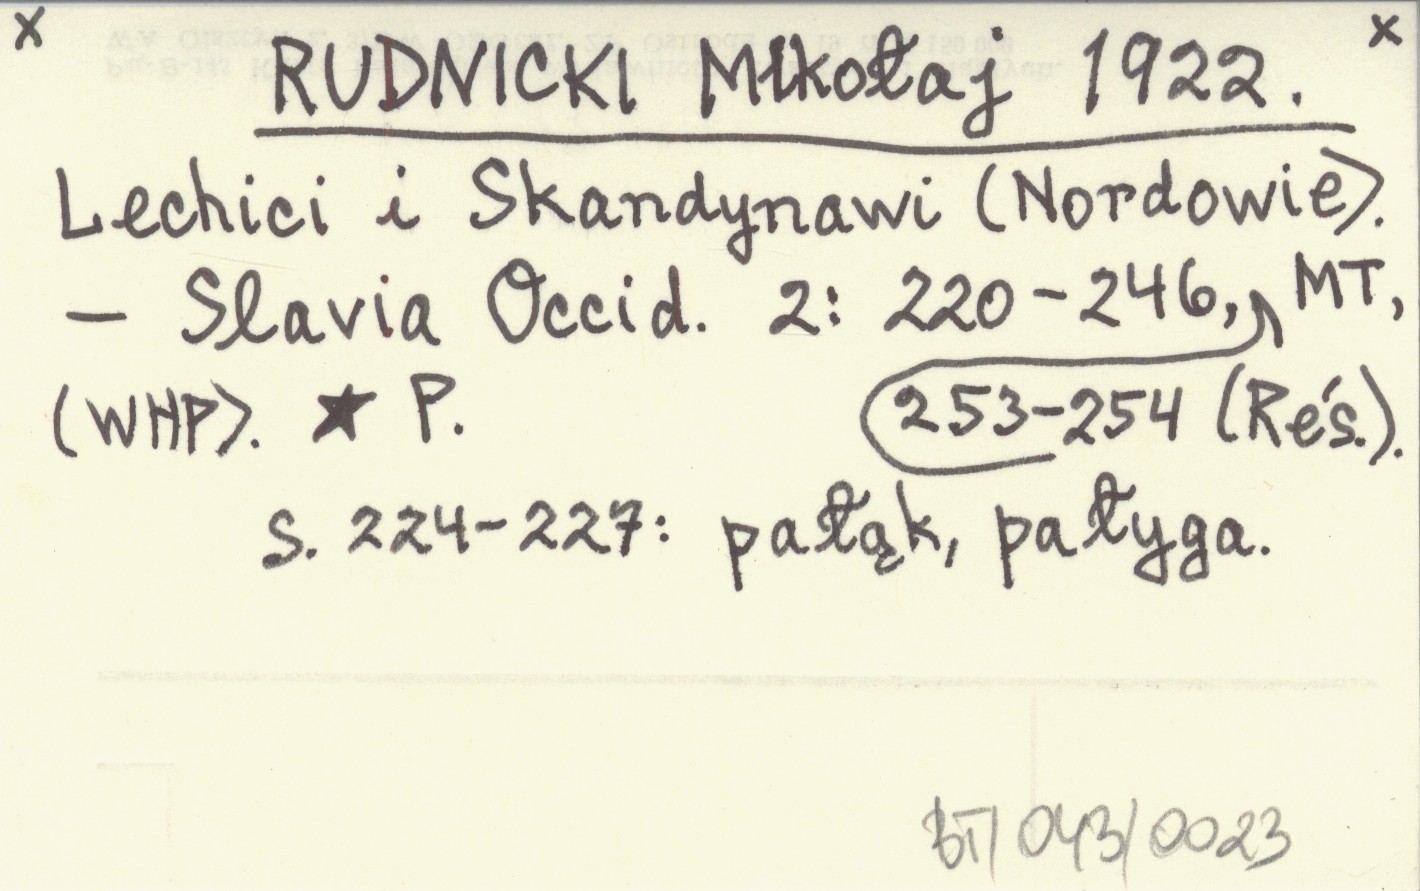 x RUDNICKI Mikołaj 1922. x
Lechici i Skandynawi (Nordowie).
– Slavia Occid. 2: 220–246, MT,
(WHP). ★ P. 253–254 (Reś.).
s. 224–227: pałąk, pałyga.
BT/043/0023